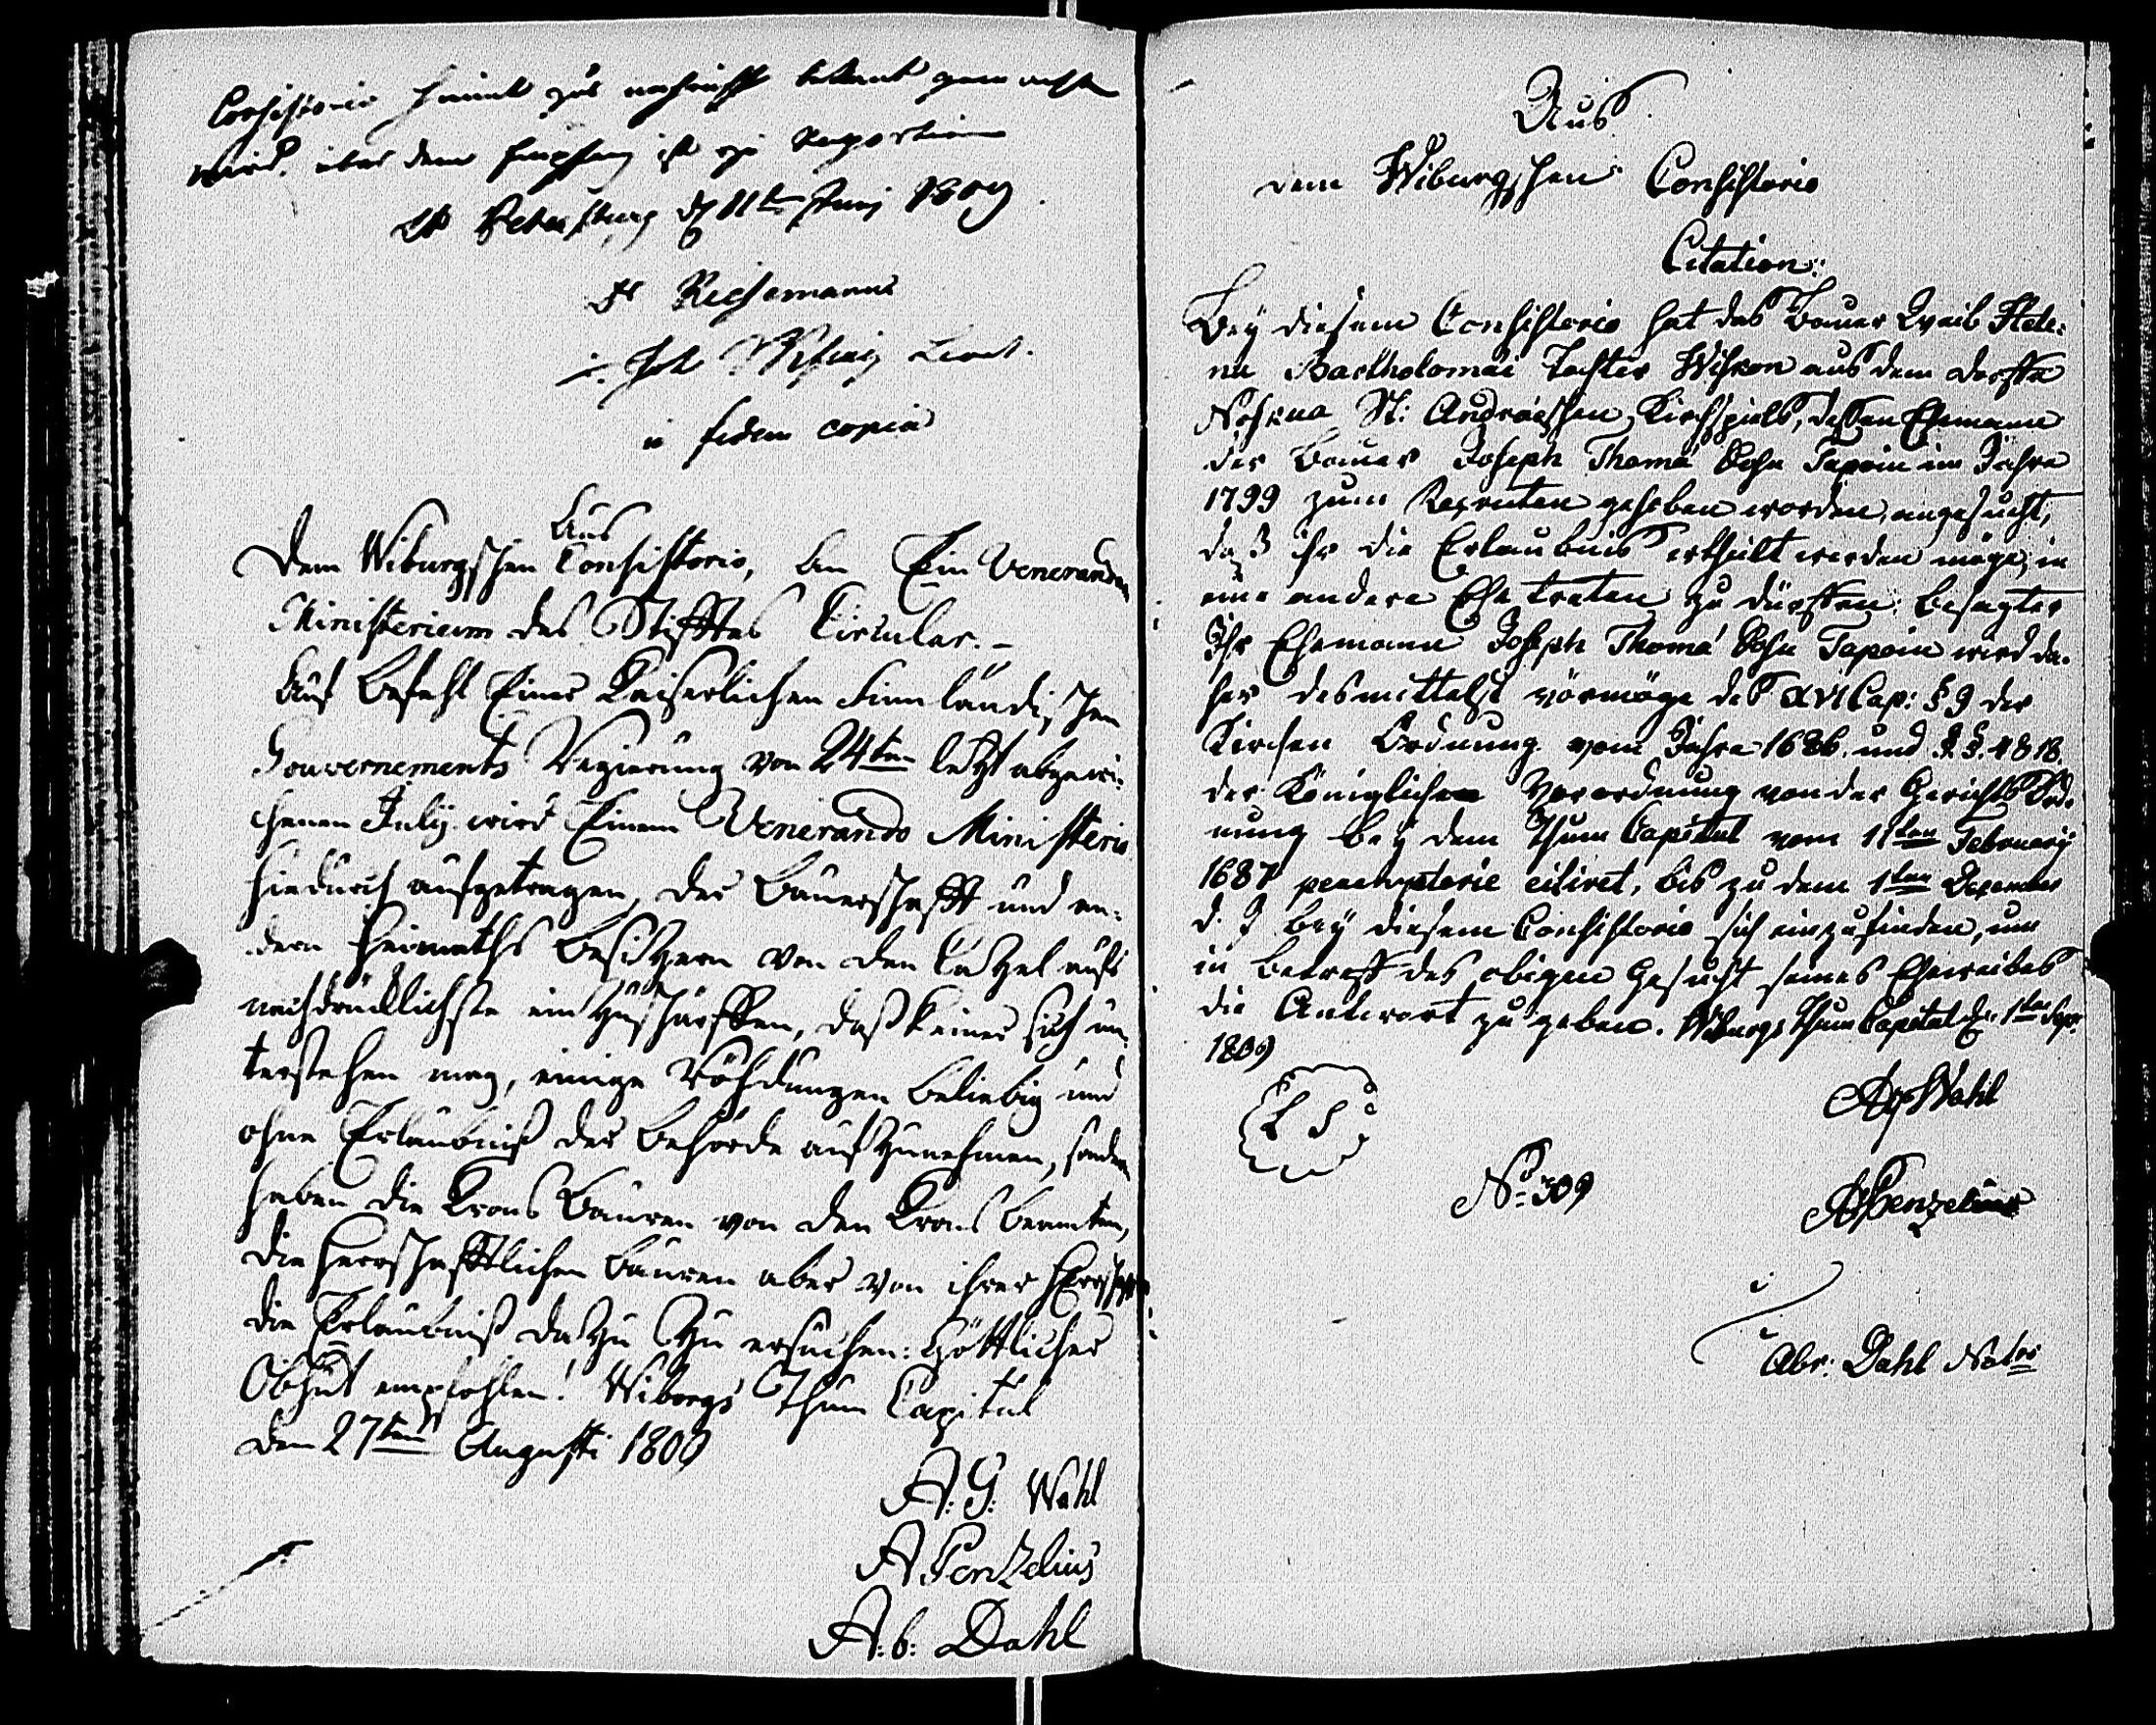 Consistorio hiemit zur nachricht bekant gemacht
wird. über dem Empfang ist zu raportiren
St Petersburg d 11ten Juny 1809
Riesemann
Lieut.
in fidem copiae
Aus
dem Wiburgschen Consistorio, an Ein Venerandum
Ministerium des Stifftes Circular. –
Auf Befehl Einer Kaiserlichen Finnländischen
Gouvernements Regierung vom 24ten letzt abgewi-
chenen July wird Einem Venerando Ministerio
hiedurch aufgetragen, der Bauerschafft und an-
dern Heimaths Besitzern von der Cantzel aufs
nachdrücklichste einzuschärffen, daß keiner sich un-
terstehen mag, einige Röhdungen beliebig und
ohne Erlaubniß der Behörde aufzunehmen, sondern
haben die Krons Bauren von den Krons beamten,
die Herrschafftlichen Bauren aber von ihrer Herrschafft
die Erlaubniß dazu zu ersuchen: Göttlicher
Obhut empfohlen! Wiborgs Thum Capitul
den 27ten Augusti 1809
A: G: Wahl
A Penzelius
A: b: Dahl
Aus
dem Wiburgschen Consistorio
Citation:
Bey diesem Consistorio hat das Bauer Weib Hele-
na Bartholomäi Tochter aus dem Dorffe
St: Andräeschen Kirchspiels, dessen Ehemann
der Bauer Joseph Thomä Sohn Tapoin im Jahre
1799 zum Recruten gehoben worden, angesucht,
daß ihr die Erlaubnis ertheilt werden möge, in
eine andere Ehe treten zu dürffen; besagter
Ihr Ehemann Joseph Thomä Sohn Tapoin wird da-
her desmittelst vörmöge des XVI Cap: § 9 der
Kirchen Ordnung vom Jahre 1686. und §. §. 4 & 18.
der Königlichen Verordnung von der Gerichts Ord-
nung bey dem Thum Capitul vom 11ten Februarÿ
1687 peremptorie citiret, bis zu dem 1ten December
d. J bey diesem Consistorio sich einzufinden, um
in Betreff des obigen Gesucht seines Eheweibes
die Antwort zu geben. Wiburgs Thum Capitul d: 1ten Sepr.
1809
L S
Ag Wahl
No 309
A Penzelius
Abr: Dahl Notrs